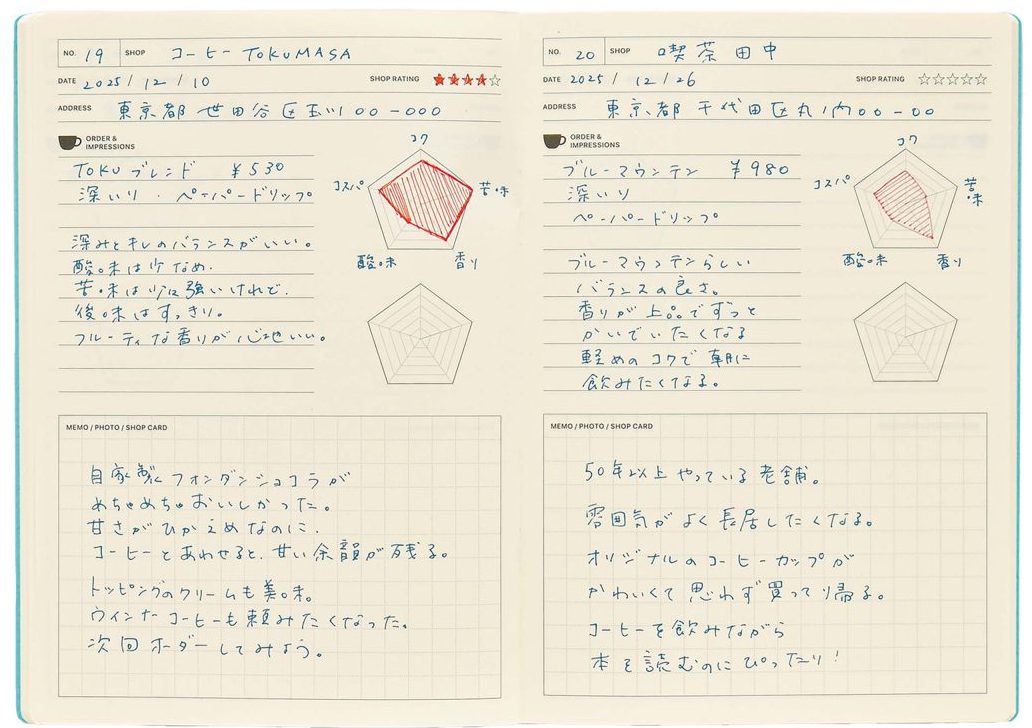 NO. 19 SHOP コーヒー TOKUMASA
DATE 2025 / 12 / 10 SHOP RATING ★★★★☆
ADDRESS 東京都 世田谷区玉川 00-000
ORDER &
IMPRESSIONS
TOKU ブレンド ¥530
深いり・ペーパードリップ
深みとキレのバランスがいい。
酸味は少なめ.
苦味は少し強いけれど.
後味はすっきり。
フルーティな香りが心地いい。
コク
苦味
香り
酸味
コスパ
MEMO / PHOTO / SHOP CARD
自家製フォンダンショコラが
めちゃめちゃおいしかった。
甘さがひかえめなのに.
コーヒーとあわせると、甘い余韻が残る。
トッピングのクリームも美味。
ウインナーコーヒーも頼みたくなった。
次回オーダーしてみよう。
NO. 20 SHOP 喫茶田中
DATE 2025 / 12 / 26 SHOP RATING ☆☆☆☆☆
ADDRESS 東京都 千代田区丸ノ内00-00
ORDER &
IMPRESSIONS
ブルーマウンテン ¥980
深いり
ペーパードリップ
ブルーマウンテンらしい
バランスの良さ。
香りが上品でずっと
かいでいたくなる
軽めのコクで朝に
飲みたくなる。
コク
苦味
香り
酸味
コスパ
MEMO / PHOTO / SHOP CARD
50年以上やっている老舗。
雰囲気がよく長居したくなる。
オリジナルのコーヒーカップが
かわいくて思わず買って帰る。
コーヒーを飲みながら
本を読むのにぴったり!